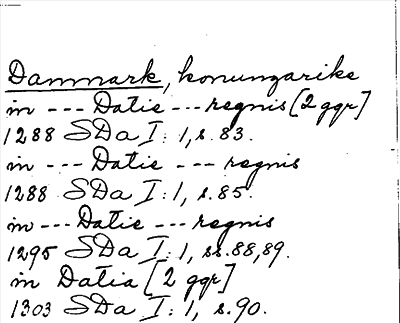 Danmark, konungarike
in --- Datie --- regnis [2 ggr]
1288 SDa I: 1, s. 83.
in --- Datie --- regnis
1288 SDa I: 1, s. 85.
in --- Datie --- regnis
1295 SDa I: 1, ss. 88, 89.
in Datia [2 ggr]
1303 SDa I: 1, s. 90.